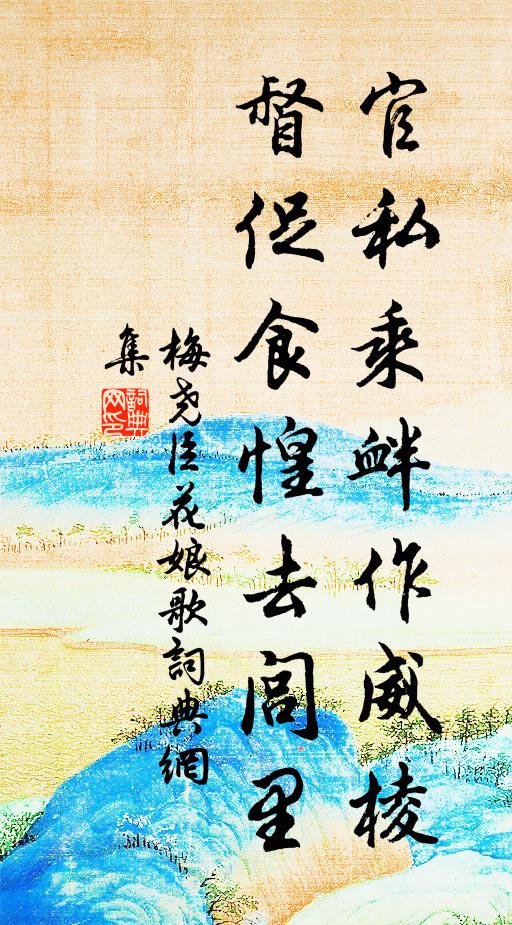 官私乘衅作威棱
督促食惶去闾里
梅尧臣花娘歌詞典網
集
詞典网印